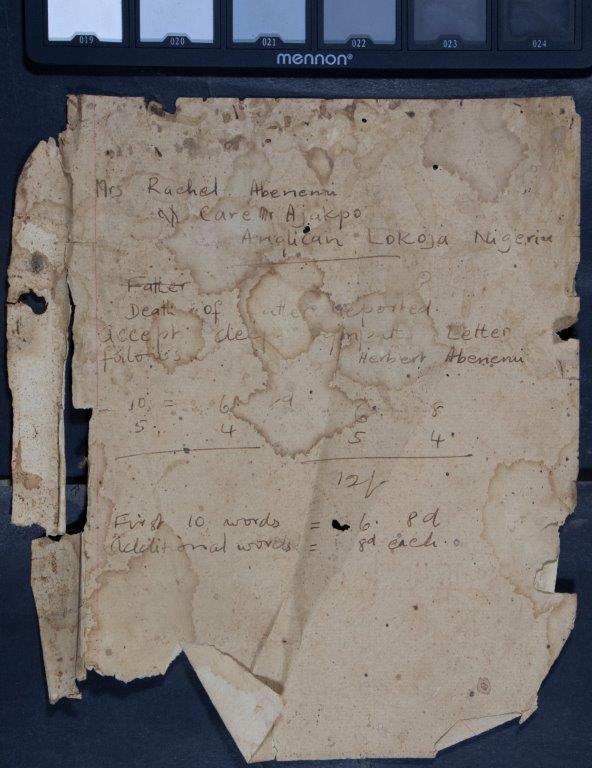 019 020 021 022 023 024
mennon®
Mrs Rachel Abenemi
c/o Care Mr Ajakpo
Anglican Lokoja Nigeria
Father
Death of father reported.
accept deep Letter
follows Herbert Abenemi
10 = 6 8
5 4 5 4
12/
First 10 words = 6. 8d
additional words = 8d each.